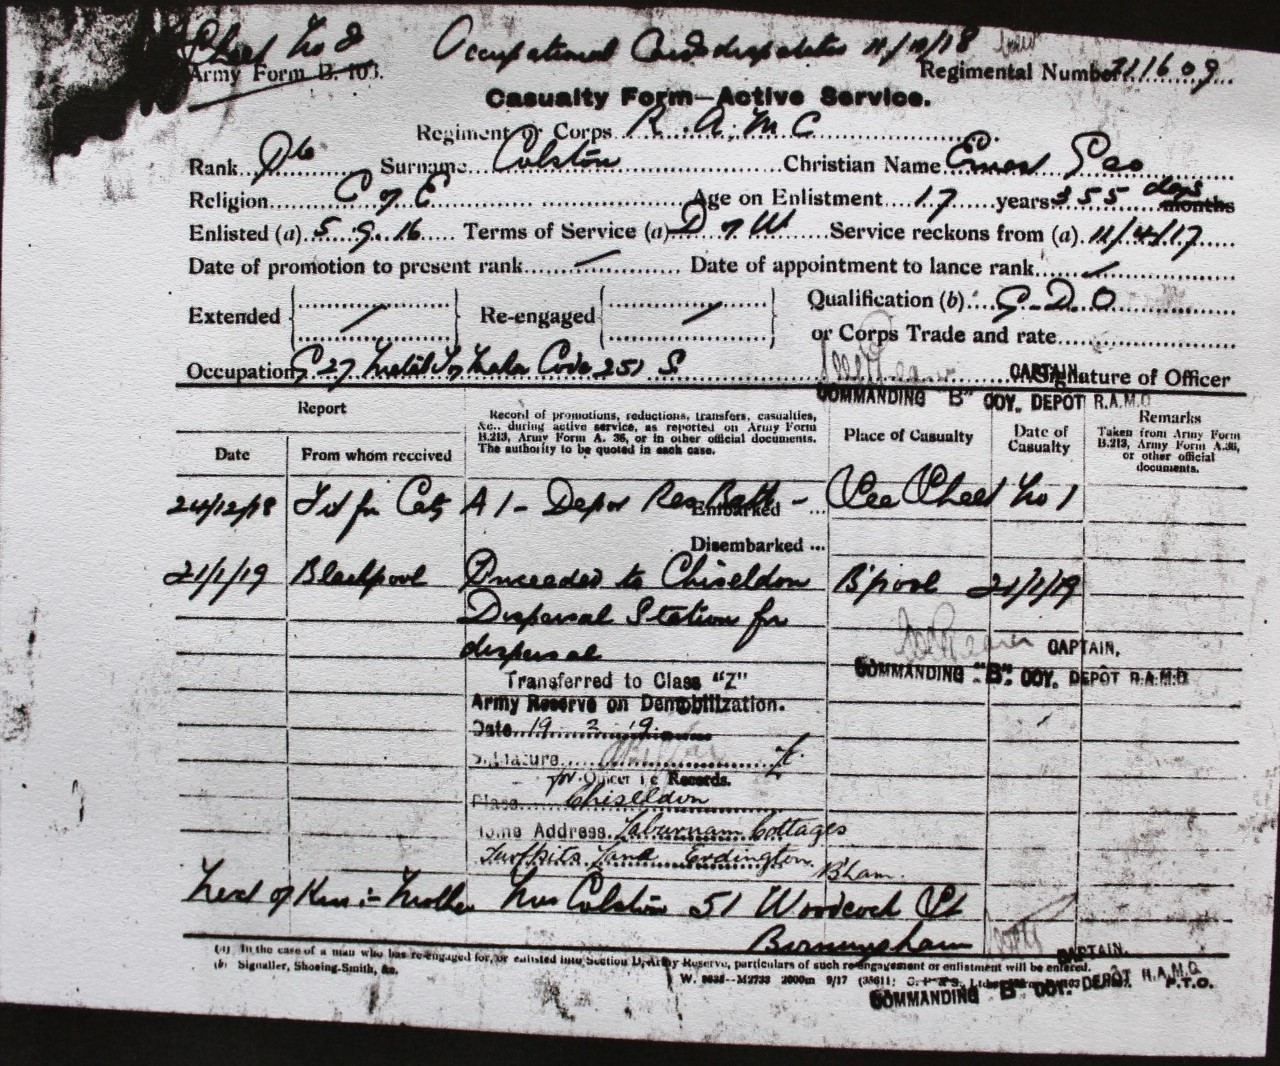 Sheet No 2 Occupational Card despatched 11/12/18
Army Form B. 103.
Regimental Number 111609
Casualty Form—Active Service.
Regiment or Corps R.A.M.C
Rank Pte Surname Colston Christian Name Ernest Geo
Religion C of E Age on Enlistment 17 years 355 days months
Enlisted (a) 5.9.16 Terms of Service (a) D of W Service reckons from (a) 11/4/17
Date of promotion to present rank Date of appointment to lance rank
Extended Re-engaged Qualification (b) G.D.O
or Corps Trade and rate
Occupation G 27 Metal Code 251 S.
CAPTAIN Signature of Officer
COMMANDING "B" COY. DEPOT R.A.M.C
Report
Date From whom received
Record of promotions, reductions, transfers, casualties, &c., during active service, as reported on Army Form B.213, Army Form A. 36, or in other official documents. The authority to be quoted in each case.
Place of Casualty
Date of Casualty
Remarks
Taken from Army Form B.213, Army Form A.36, or other official documents.
24/12/18 for Cat A 1 - Depot Res Batt - See Sheet No 1
Embarked ...
Disembarked ...
21/1/19 Blackpool Proceeded to Chiseldon B'pool 21/1/19
Dispersal Station for
dispersal
CAPTAIN,
COMMANDING "B" COY. DEPÔT R.A.M.C
Transferred to Class "Z"
Army Reserve on Demobilization.
Date 19 2 19
Signature
for Officer i/c Records.
Place Chiseldon
Home Address. Laburnam Cottages
Turfpits Lane Erdington
B'ham.
Next of Kin :- Mother Mrs Colston 51 Woodcock St
Birmingham
(a) In the case of a man who has re-engaged for, or enlisted into Section D, Army Reserve, particulars of such re-engagement or enlistment will be entered.
(b) Signaller, Shoeing-Smith, &c.
CAPTAIN.
COMMANDING "B" COY. DEPÔT. R.A.M.C.
P.T.O.